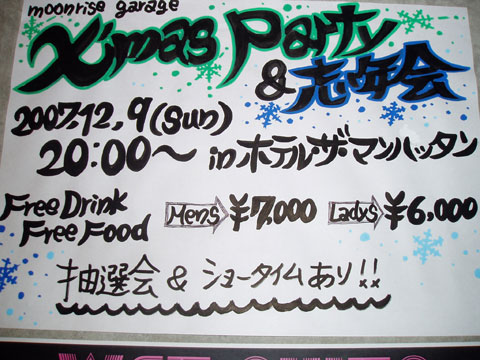 moonrise garage
X'mas Party
& 忘年会
2007.12.9(sun)
20:00〜 in ホテルザ・マンハッタン
Free Drink
Free Food
Mens ¥7,000 Ladys ¥6,000
抽選会 & ショータイムあり!!